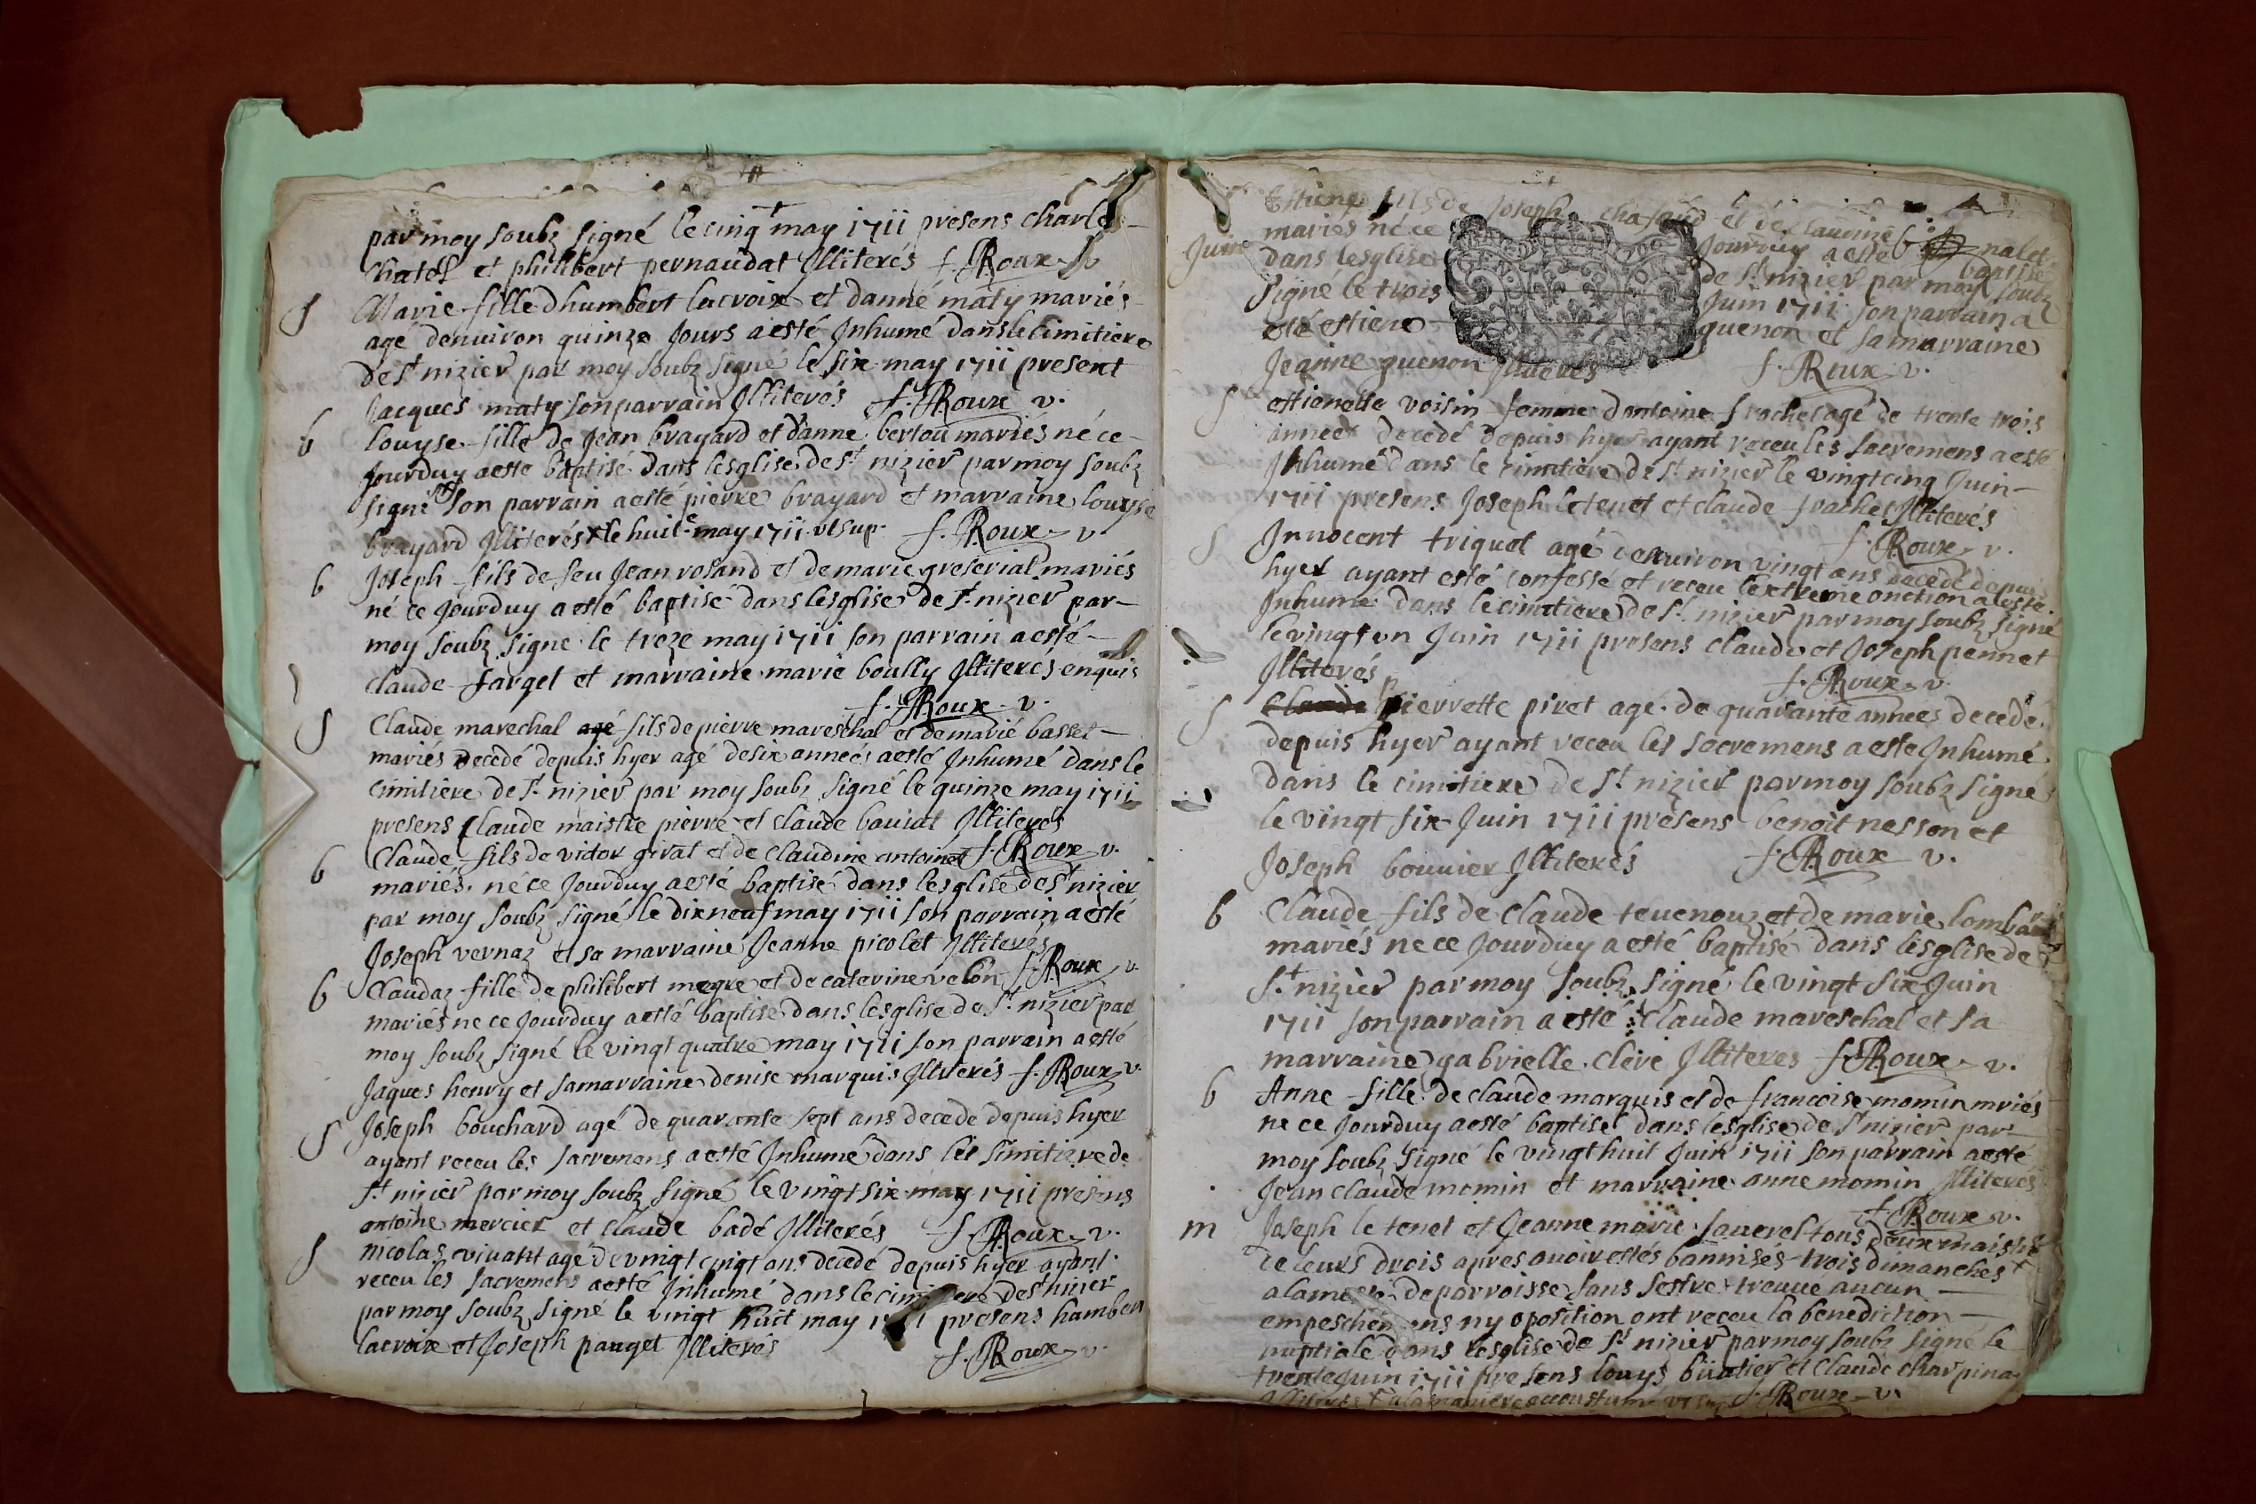 par moy soubz signé le cinq may 1711 presens charle
chatel et philibert pernaudat Illiterés f. Roux v
S Marie fille dhumbert lacroix et danne maty mariés
agé denuiron quinze Jours a esté Inhumé dans le cimitiere
de St nizier par moy soubz signé le six may 1711 present
Jacques maty son parrain Illiterés f. Roux v.
b louyse fille de Jean brayard et d'anne bertou mariés né ce
Jourduy a esté baptisé dans lesglise de St nizier par moy soubz
signé son parrain a esté pierre brayard et marraine louyse
brayard Illiterés le huit may 1711 vt sup. f. Roux v.
b Joseph fils de feu Jean rosand et de marie greserial mariés
né ce Jourduy a esté baptisé dans lesglise de St nizier par
moy soubz signé le treze may 1711 son parrain a esté
claude farget et marraine marie boully Illiterés enquis
f. Roux v.
S Claude marechal agé fils de pierre mareschal et de marie basset
mariés decedé depuis hyer agé de six anneés a esté Inhumé dans le
cimitiere de St nizier par moy soubz signé le quinze may 1711
presens Claude maistre pierre et claude bauiat Illiterés
b Claude fils de victor girat et de Claudine antoinet f. Roux v.
mariés né ce Jourduy a esté baptisé dans lesglise de St nizier
par moy soubz signé le dix neuf may 1711 son parrain a esté
Joseph vernaz et sa marraine Jeanne picolet Illiterés
b Claudaz fille de philibert megre et de caterine velon f. Roux v.
mariés ne ce Jourduy a esté baptisé dans lesglise de St nizier par
moy soubz signé le vingt quatre may 1711 son parrain a esté
Jaques henry et sa marraine denise marquis Illiterés f. Roux v.
S Joseph bouchard agé de quarante sept ans decede depuis hyer
ayant receu les sacremens a esté Inhumé dans les simitiere de
St nizier par moy soubz signé le vingt six may 1711 presens
antoine mercier et claude badé Illiterés f. Roux v.
S nicolas viuant agé de vingt cinqt ans decedé depuis hyer ayant
receu les sacremens a esté Inhumé dans le de St nizier
par moy soubz signé le vingt huit may presens humber
lacroix et Joseph pauget Illiterés f. Roux v.
Estiene fils de Joseph et de
mariés né ce Jourduy a esté baptisé
Juin dans lesglise de St nizier par moy soubz
signé le trois Juin 1711 son parrain a
esté estiene quenon et sa marraine
Jeanne quenon Illiterés f. Roux v.
S estienette voisin femme dantoine frachet agé de trente trois
anneés decedé depuis hyer ayant receu les sacremens a esté
Inhumé dans le cimitiere de St nizier le vingt cinq Juin
1711 presens Joseph letenet et claude frachet Illiterés
f. Roux v.
S Innocent triquet agé denuiron vingt ans decedé depuis
hyer ayant esté confessé et receu lextreme onction a esté
Inhumé dans le cimitiere de St nizier par moy soubz signé
le vingt un Juin 1711 presens claude et Joseph pennet
Illiterés f. Roux v.
S Claude pierrette piret agé de quarante annees decedé
depuis hyer ayant receu les sacremens a esté Inhumé
dans le cimitiere de St nizier par moy soubz signé
le vingt six Juin 1711 presens benoit nesson et
Joseph bouuier Illiterés f. Roux v.
b Claude fils de Claude teuenouz et de marie lombard
mariés ne ce Jourduy a esté baptisé dans lesglise de
St nizier par moy soubz signé le vingt six Juin
1711 son parrain a esté Claude mareschal et sa
marraine gabrielle clere Illiteres f. Roux v.
b Anne fille de claude marquis et de francoise momin mriés
ne ce Jourduy a esté baptisé dans lesglise de St nizier par
moy soubz signé le vingt huit Juin 1711 son parrain a esté
Jean claude momin et marraine anne momin Illiterés
f. Roux v.
m Joseph le tenet et Jeanne marie sauerel tous deux maistre
de leurs drois apres auoir estés bannisés trois dimanches
a la de parroisse sans sestre treuué aucun
ny oposition ont receu la benediction
nuptiale dans lesglise de St nizier par moy soubz signé le
trente Juin 1711 presens louys buatier et Claude charpina
Illiterés a la maniere accoustumé f. Roux v.